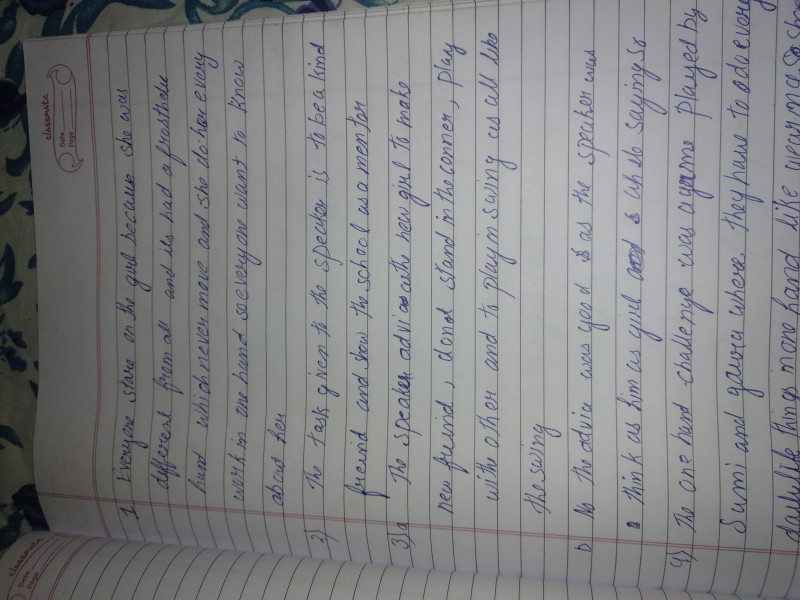 classmate
Date
Page
1. Everyone stare on the girl because she was
different from all and its had a prosthetic
hand which never move and she do her every
work in one hand so everyone want to know
about her
2) The task given to the speaker is to be a kind
freind and show the school as a mentor
3) a The speaker advice the new girl to make
new freind, donot stand in the corner, play
with other and to play in swing as all like
the swing
b No the advice was good as as the speaker was
think as him as girl while saying so
4) The one hand challenge was a game played by
Sumi and gauri where they have to do every
daily like things in one hand like wearing shoe
classmate
Date
Page